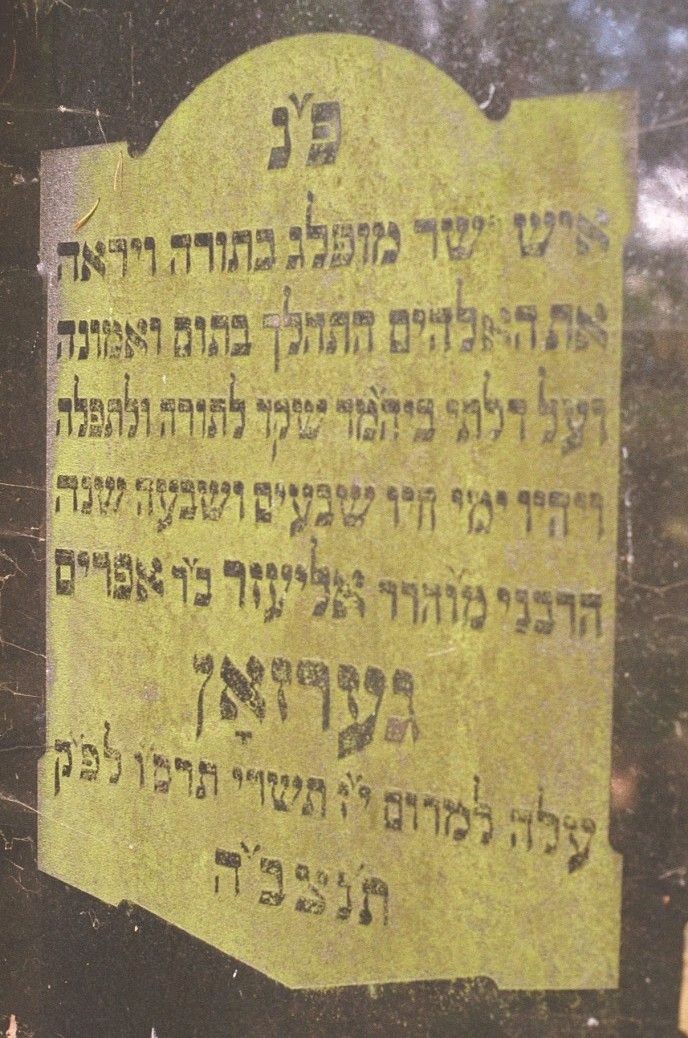 פ״נ
איש ישר מופלג בתורה וירא
את האלהים התהלך בתום ואמונה
ועל דלתי ביהמ״ד שקד לתורה ולתפלה
ויהיו ימי חייו שבעים ושבעה שנה
הרבני מוהרר אליעזר ב״ר אפרים
גערזאָן
עלה למרום תשרי לפ״ק
תנצב״ה